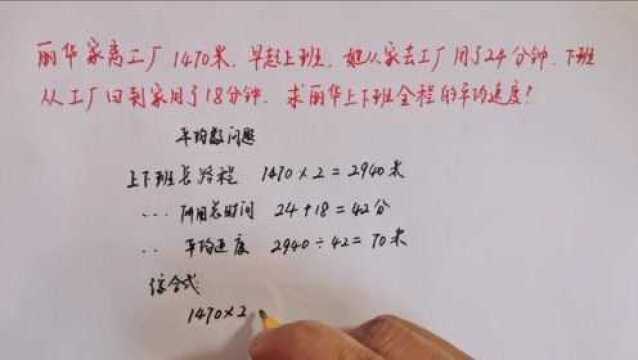 丽华家离工厂1470米，早起上班，她从家去工厂用了24分钟，下班
从工厂回到家用了18分钟，求丽华上下班全程的平均速度？
平均数问题
上下班总路程 1470×2=2940米
... 所用总时间 24+18=42分
.. 平均速度 2940÷42=70米
综合式：
1470×2